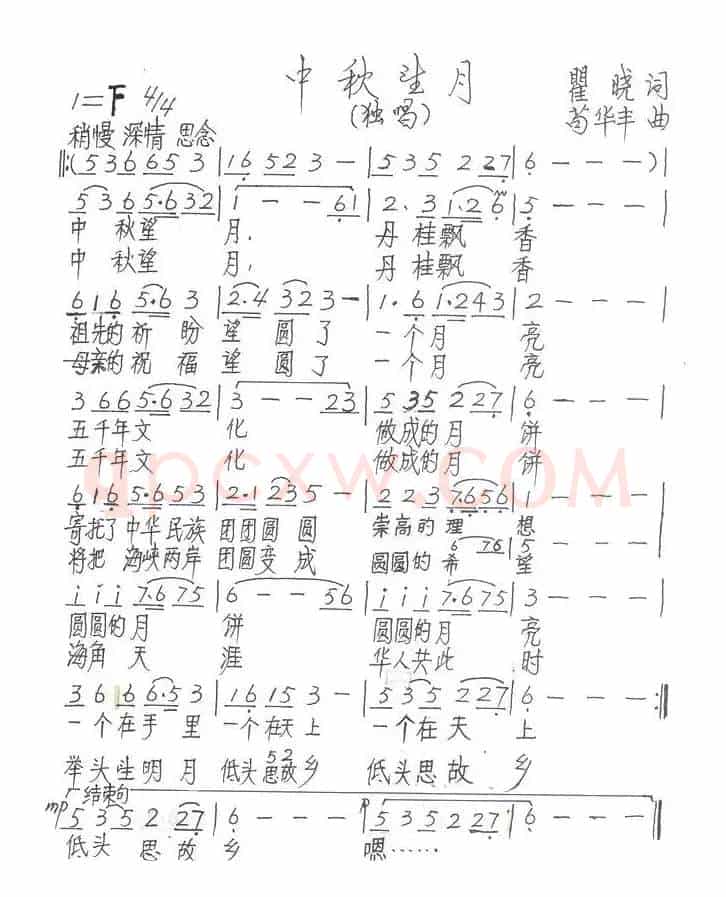 中秋望月
(独唱)
瞿晓词
苟华丰曲
1=F 4/4
稍慢 深情 思念
‖:(5 3 6 6 6 5 3 | 1 6 5 2 3 — | 5 3 5 2 2 2 7 | 6 — — —)|
5 3 6 5·6 3 2 | 1 — — 6 1 | 2· 3 1·2 6 | 5 — — — |
中 秋望 月, 丹桂飘 香
中 秋望 月, 丹桂飘 香
6 1 6 5·6 3 | 2·4 3 2 3 — | 1·6 1·2 4 3 | 2 — — — |
祖先的祈盼望圆了 一个月 亮
母亲的祝福望圆了 一个月 亮
3 6 6 5·6 3 2 | 3 — — 2 3 | 5 3 5 2 2 7 | 6 — — — |
五千年文 化 做成的月 饼
五千年文 化 做成的月 饼
6 1 6 5·6 5 3 | 2·1 2 3 5 — | 2 2 3 7·6 5 6 | 1 — — — |
寄托了中华民族 团团圆圆 崇高的理 想
6 7 6 | 5 — — — |
将把 海峡两岸 团圆变成 圆圆的希 望
i i i 7·6 7 5 | 6 — — 5 6 | i i i 7·6 7 5 | 3 — — — |
圆圆的月 饼 圆圆的月 亮
海角天 涯 华人共此 时
3 6 6 6·5 3 | 1 6 1 5 3 — | 5 3 5 2 2 7 | 6 — — — :‖
一个在手里 一个在天上 一个在天 上
5 2
举头望明月 低头思故乡 低头思故 乡
结束句
mp 5 3 5 2 2 7 | 6 — — — | p 5 3 5 2 2 7 | 6 — — — ‖
低头 思故 乡 嗯……
qpcxw.COM